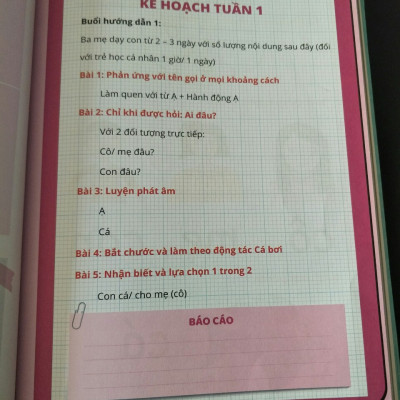 KẾ HOẠCH TUẦN 1
Buổi hướng dẫn 1:
Ba mẹ dạy con từ 2 – 3 ngày với số lượng nội dung sau đây (đối
với trẻ học cá nhân 1 giờ/ 1 ngày)
Bài 1: Phản ứng với tên gọi ở mọi khoảng cách
Làm quen với từ A + Hành động A
Bài 2: Chỉ khi được hỏi: Ai đâu?
Với 2 đối tượng trực tiếp:
Cô/ mẹ đâu?
Con đâu?
Bài 3: Luyện phát âm
A
Cá
Bài 4: Bắt chước và làm theo động tác Cá bơi
Bài 5: Nhận biết và lựa chọn 1 trong 2
Con cá/ cho mẹ (cô)
BÁO CÁO